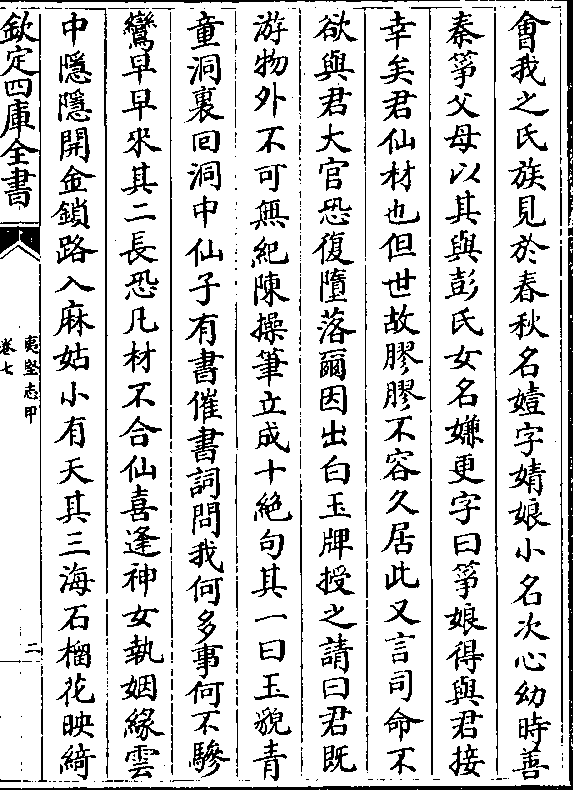 會我之氏族見於春秋名嬉字婧娘小名次心幼時善
秦箏父母以其與彭氏女名嫌更字曰箏娘得與君接
幸矣君仙材也但世故膠膠不容久居此又言司命不
欲與君大官恐復墮落爾因出白玉牌授之請曰君既
游物外不可無紀陳操筆立成十絶句其一曰玉貌青
童洞裏囘洞中仙子有書催書詞問我何多事何不驂
鸞早早來其二長恐凡材不合仙喜逢神女執姻緣雲
中隱隱開金鎖路入麻姑小有天其三海石榴花映綺
欽定四庫全書
夷堅志甲
卷七
二